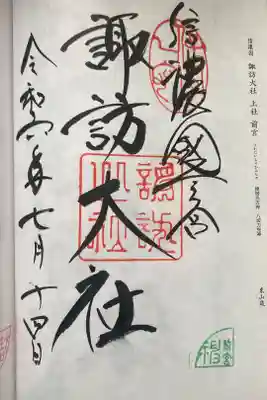 信濃國 諏訪大社 上社 前宮
信濃國一之宮
諏訪大社
諏訪大社
令和六年七月十四日
前宮